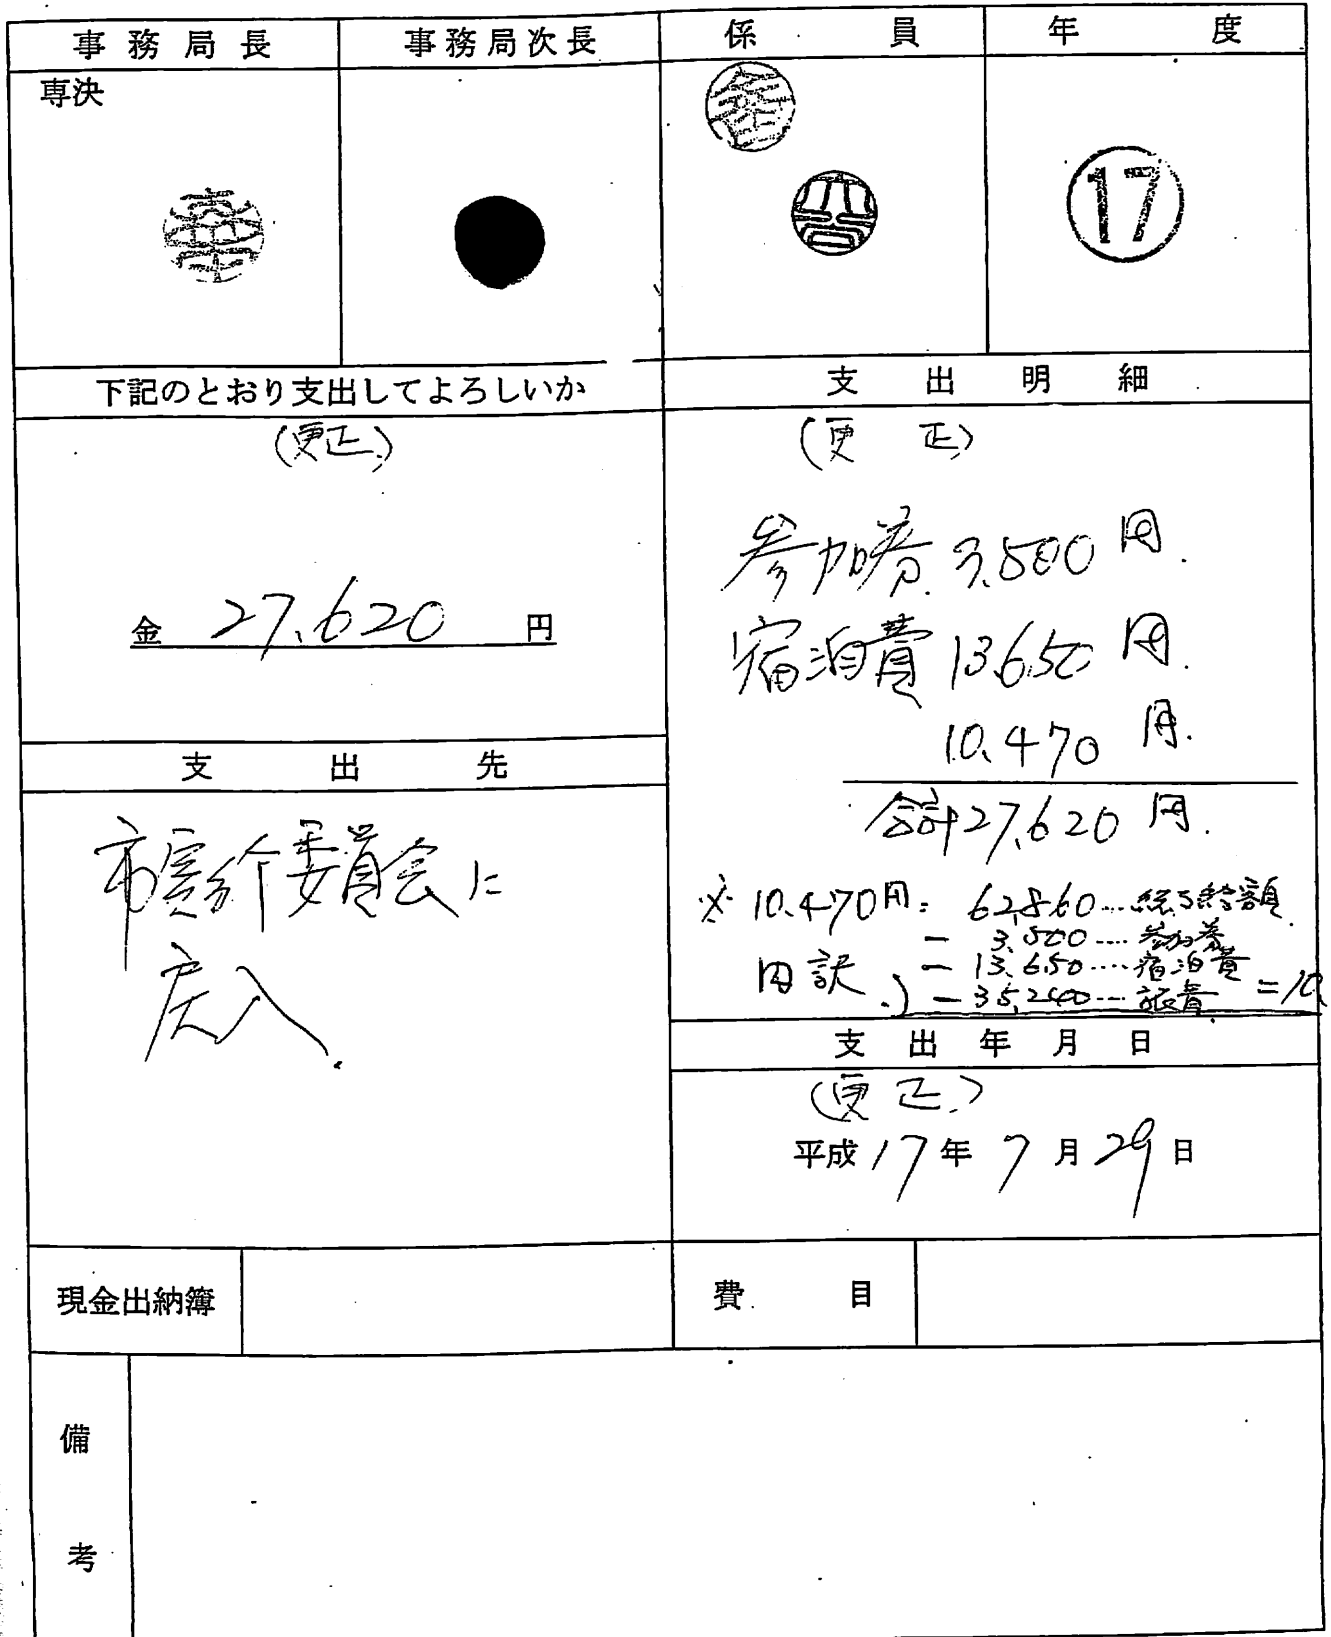 事務局長 事務局次長 係員 年度
専決
17
下記のとおり支出してよろしいか
(更正)
金 27,620 円
支出先
市実行委員会に
戻入.
支出明細
(更 正)
参加券 3,500 円.
宿泊費 13,650 円.
10,470 円.
合計 27,620 円.
※ 10,470円= 62,860…総支給額
内訳
- 3,500…参加券
- 13,650…宿泊費
- 35,240…旅費 =10,
支出年月日
(更正)
平成17年7月29日
現金出納簿 費目
備考